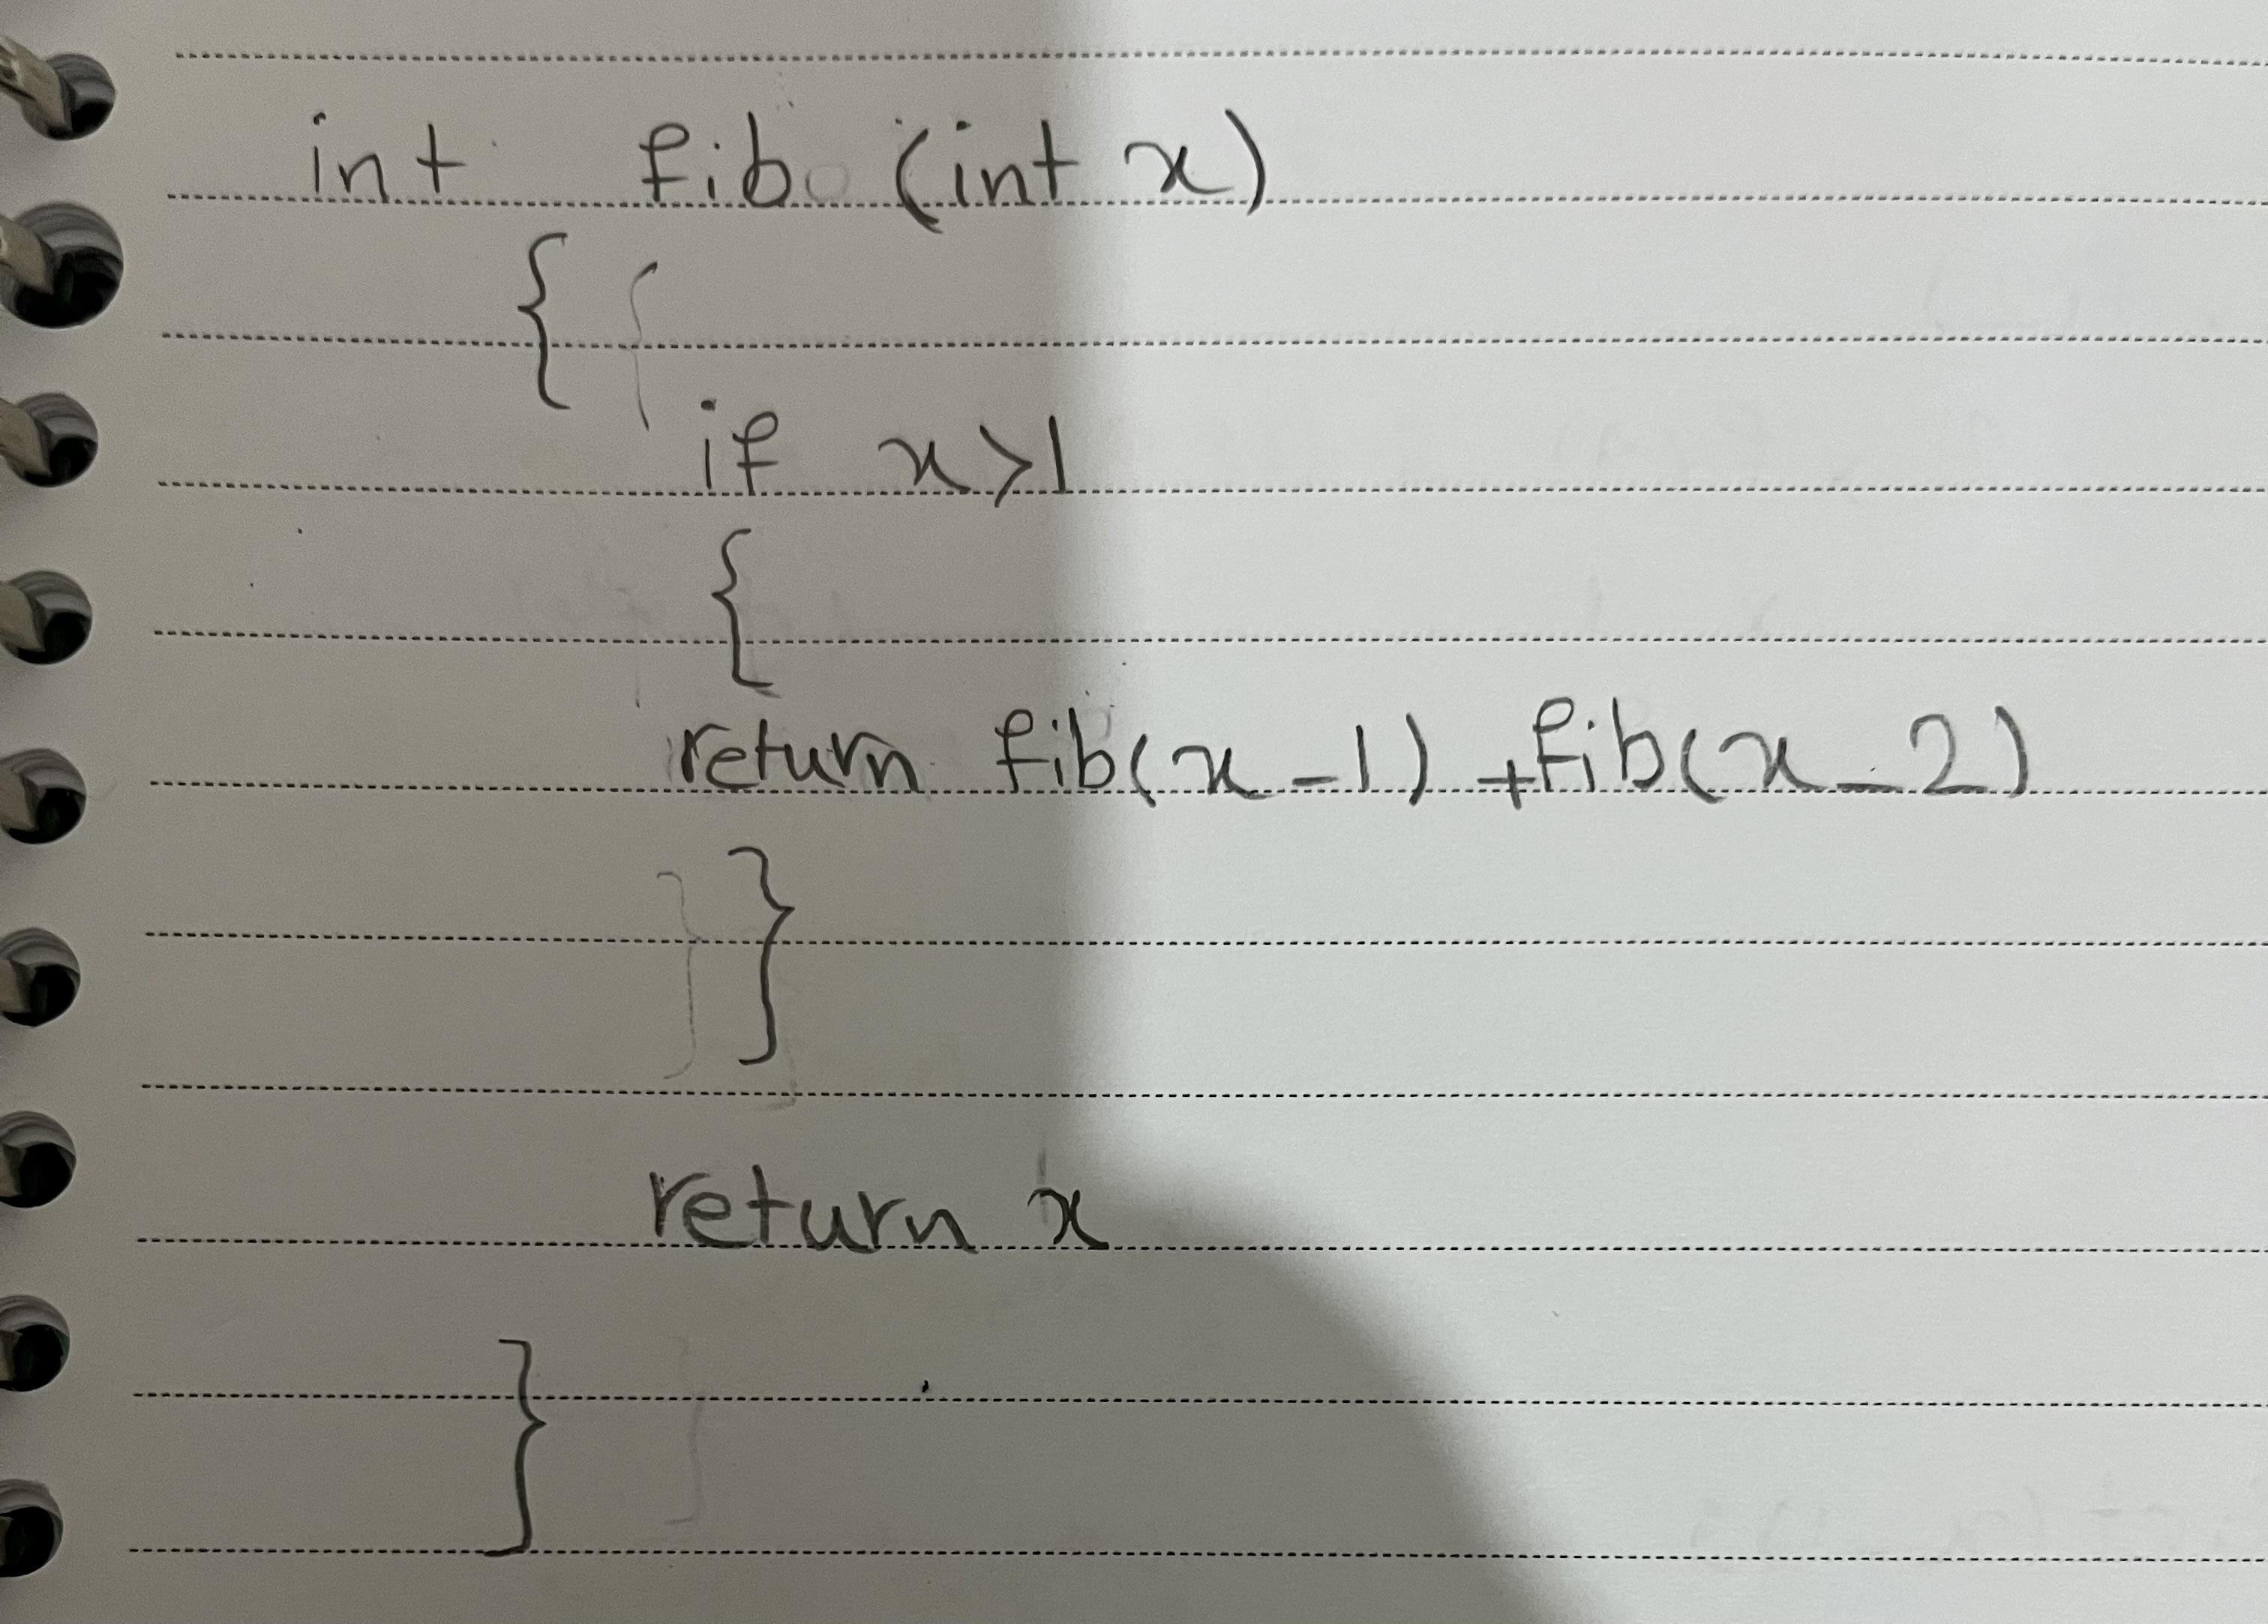 int fib (int x)
{
if x>1
{
return fib(x-1) +fib(x-2)
}
return x
}